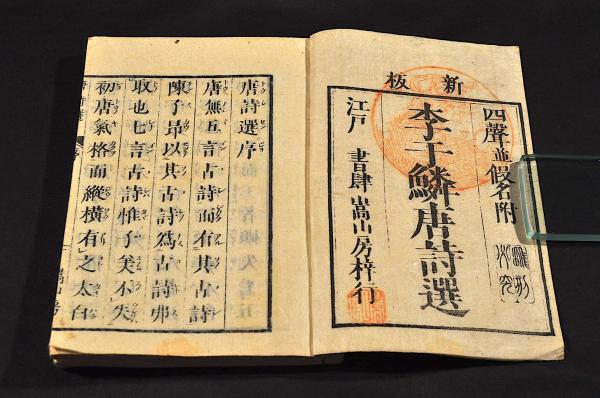 新板
四聲並假名附
李于鱗唐詩選
江戸 書肆 嵩山房梓行
唐詩選序
唐無五言古詩而有其古詩
陳子昻以其古詩爲古詩弗
取也七言古詩惟子美不失
初唐氣格而縱橫有之太白